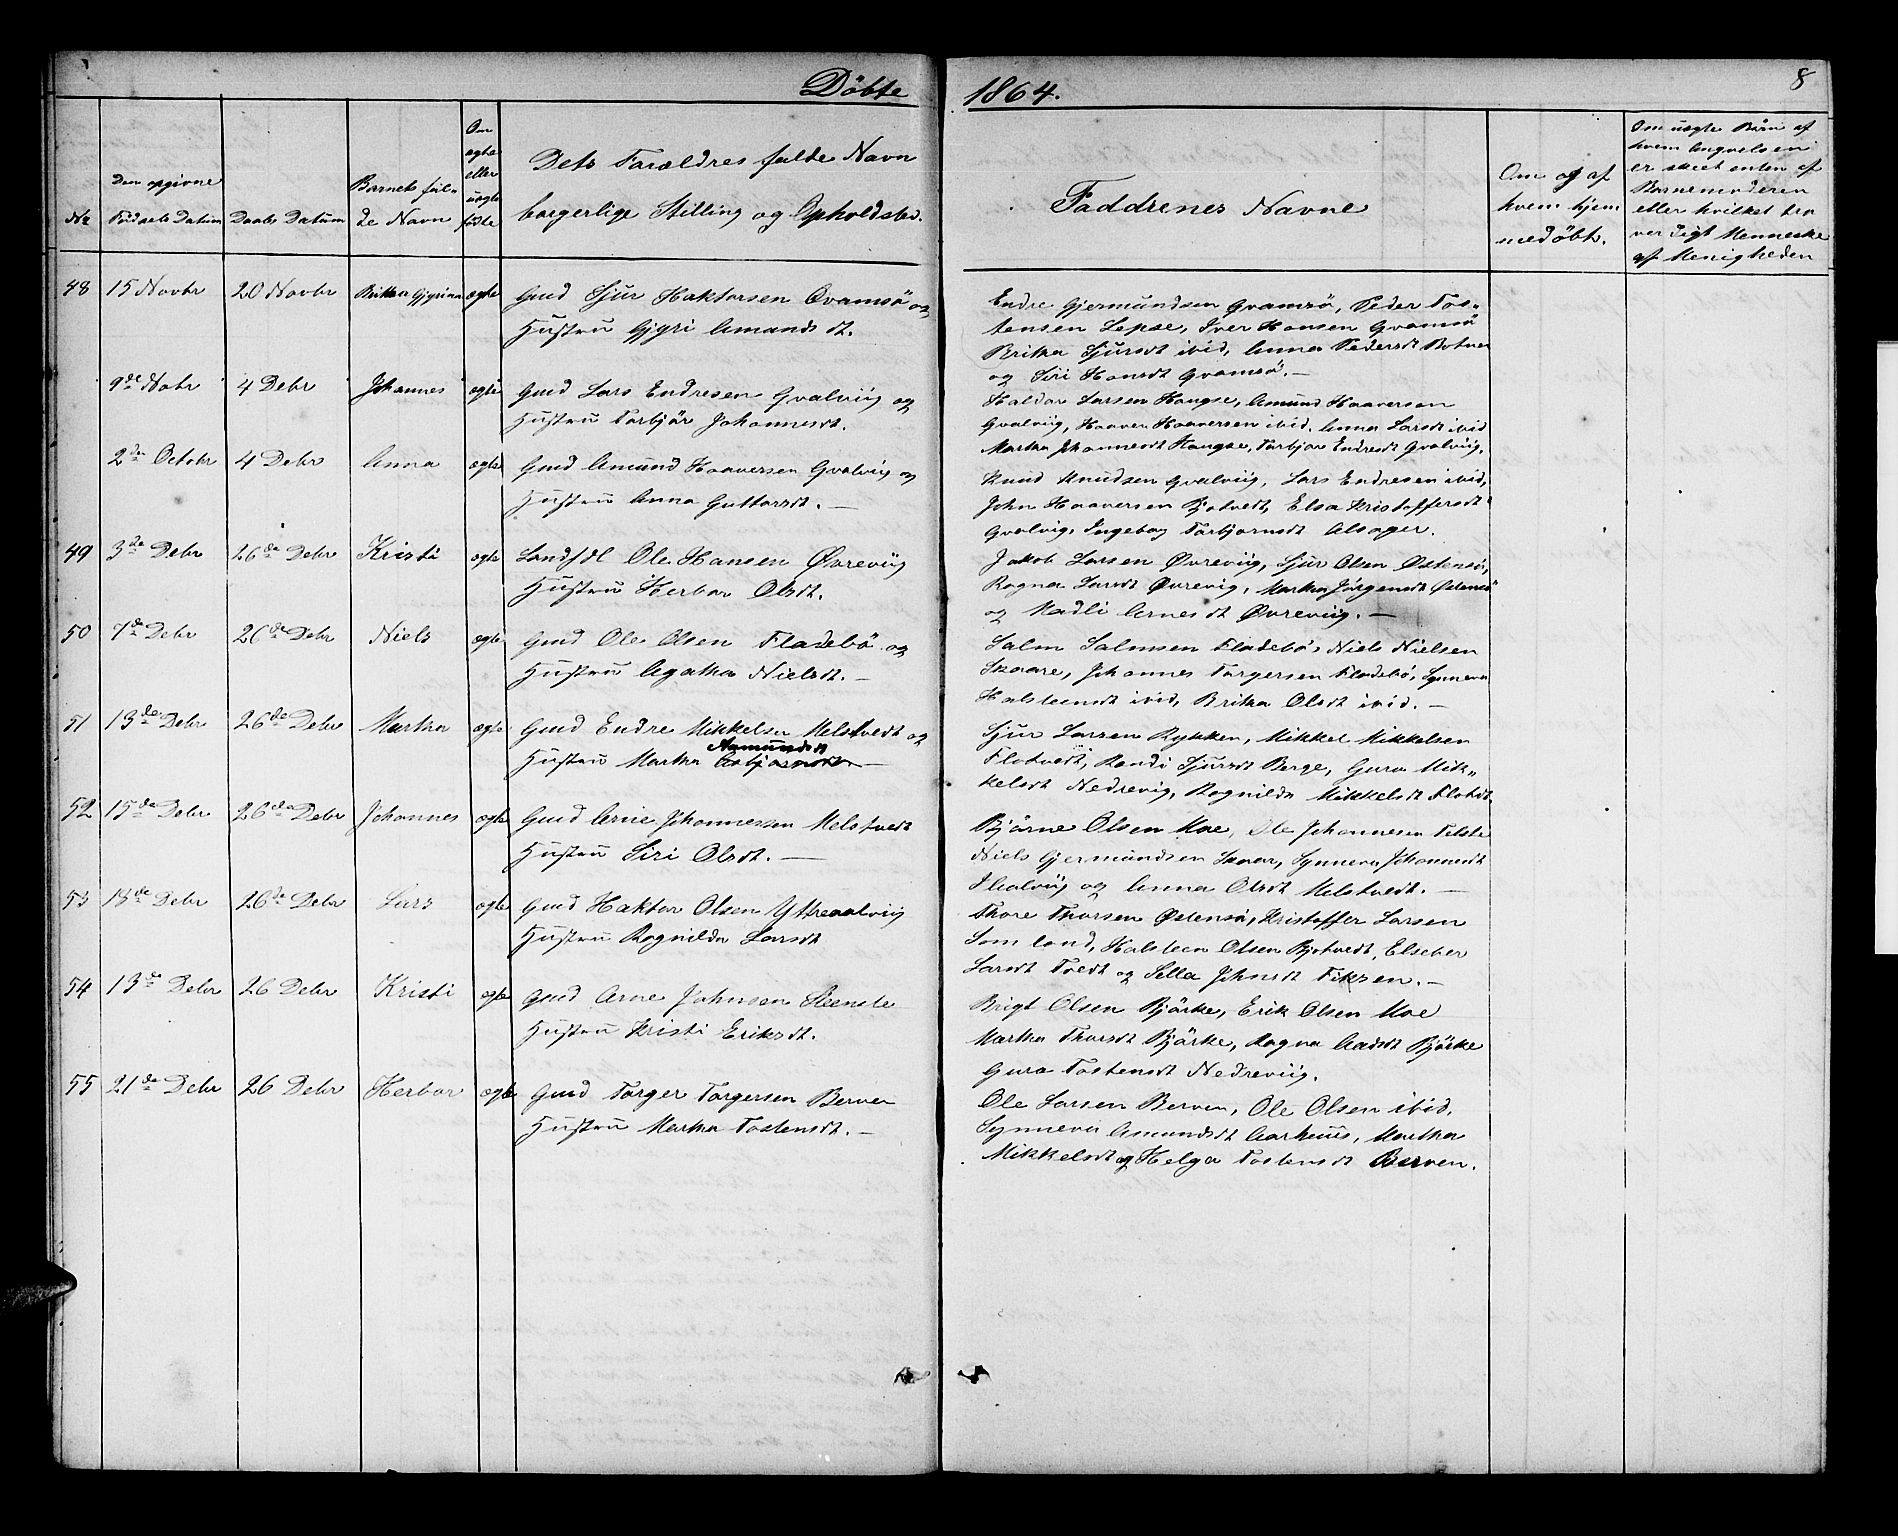 Döbte
1864.
8
No
Den opgivne
Födsels Datum
Daabs Datum
Barnets ful-
de Navn
Om
ægte
eller
uægte
födte
Dets Forældres fulde Navn
borgerlige Stilling og Opholdsted.
Faddrenes Navne
Om og af
hvem hjem
medöbt.
Om uægte Barn af
hvem Angivelsen
er skeet enten af
Barnemoderen
eller hvilket tro
værdigt Menneske
af Menigheden
48 15 Novbr 20 Novbr Britha Gjyrina ægte Gmd Sjur Haktorsen Qvamsö og
Hustru Gjyri Amundsdt.
Endre Gjermundsen Qvamsö, Peder Tos-
tensen Lepse, Iver Hansen Qvamsö
Britha Sjursdt ibid, Anna Pedersdt Botnen
og Siri Hansdt Qvamsö. -
9de Nobr 4 Debr Johannes ægte Gmd Lars Endresen Qvalviig og
Hustru Torbjör Johannesdt.
Haldor Larsen Haugse, Amund Haaversen
Qvalviig, Haaver Haaversen ibid. Anna Larsdt ibid
Martha Johannesdt Haugse, Torbjör Endresdt Qvalviig.
2den Octobr 4 Debr Anna ægte Gmd Amund Haaversen Qvalviig og
Hustru Anna Guttormsdt. -
Knud Knudsen Qvalviig, Lars Endresen ibid,
John Haaversen Bjotvedt, Elsa Kristoffersdt
Qvalvig, Ingebog Torbjornsdt Alsager.
49 3de Debr 26de Debr Kristi ægte Landsdl Ole Hansen Øvreviig
Hustru Herbor Olsdt.
Jakob Larsen Øvreviig, Sjur Olsen Østensö,
Ragna Larsdt Øvrevig, Martha Jörgensdt Østensö
og Madli Arnesdt Øvreviig. -
50 7de Debr 26de Debr Niels ægte Gmd Ole Olsen Fladebö og
Hustru Agatha Nielsdt. -
Salm Salmsen Fladebö, Niels Nielsen
Skaare, Johannes Torgersen Fladebö, Synneva
Halsteensdt ibid, Britha Olsdt ibid. -
51 13de Debr 26de Debr Martha ægte Gmd Endre Mikkelsen Melstvedt og
Aamundsdt
Hustru Martha Asbjörnsdt -
Sjur Larsen Rykken, Mikkel Mikkelsen
Flotvedt, Randi Sjursdt Berge, Guro Mik-
kelsdt Nedrevig, Ragnilda Mikkelsdt Flotvdt
52 15de Debr 26de Debr Johannes ægte Gmd Arne Johannessen Melstvedt
Hustru Siri Olsdt. -
Björne Olsen Moe, Ole Johannesen Tolste
Niels Gjermundsen Skaar, Synneva Johannesdt
Ihalviig og Anna Olsdt Melstvedt. -
53 13de Debr 26de Debr Lars ægte Gmd Haktor Olsen Ytreaalviig
Hustru Ragnilda Larsdt
Thore Thorsen Østensö, Kristoffer Larsen
Somland, Halsteen Olsen Bjotvedt, Elseber
Larsdt Tvedt og Sella Johnsdt Fiksen. -
54 13de Debr 26 Debr Kristi ægte Gmd Arne Johnsen Steenste
Hustru Kristi Eriksdt.
Brigt Olsen Bjärke, Erik Olsen Moe
Martha Thorsdt Bjärke, Ragna Aadsdt Bjärke
Guro Tostensdt Nedreviig.
55 21de Debr 26 Debr Herbor ægte Gmd Torger Torgersen Berven
Hustru Martha Tostensdt. -
Ole Larsen Berven, Ole Olsen ibid.
Synneva Amundsdt Aarhuus, Martha
Mikkelsdt og Helga Tostensdt Berven.